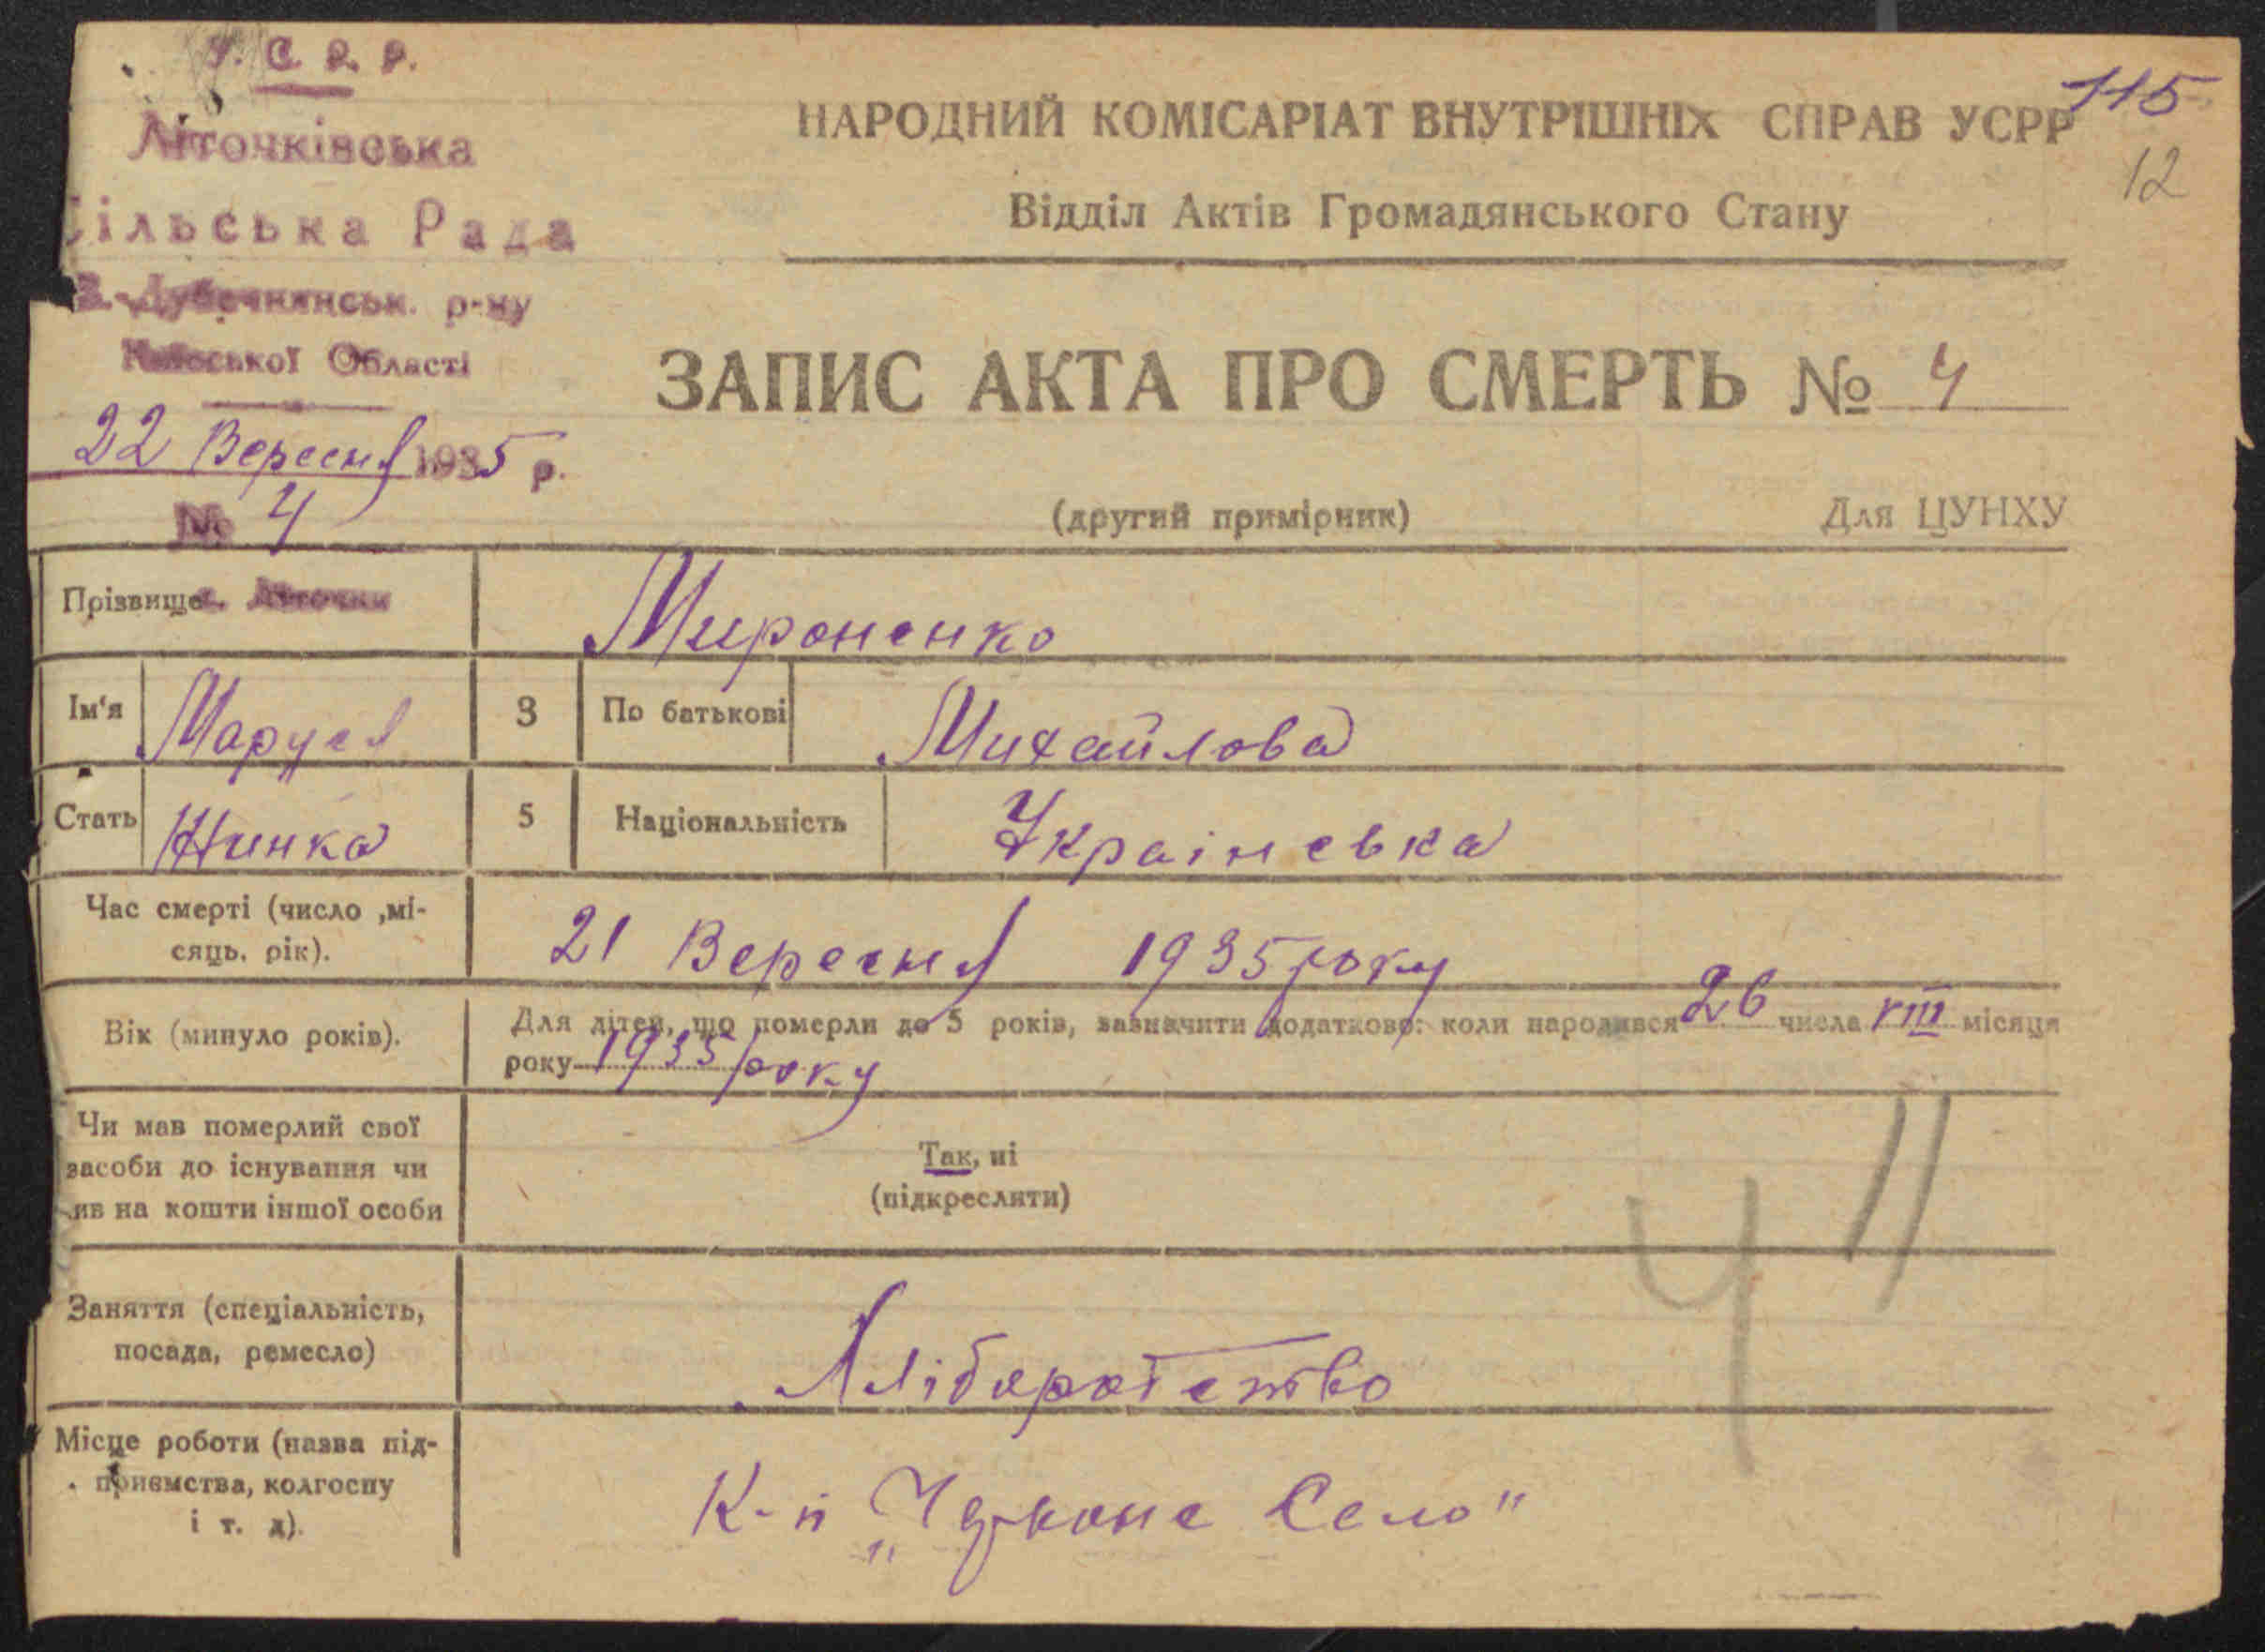 У. С. Р. Р.
Літочківська
Сільська Рада
В.-Дубечнянськ. р-ну
Київської Області
22 Вересня 1935 р.
№ 4
115
12
НАРОДНИЙ КОМІСАРІАТ ВНУТРІШНІХ СПРАВ УСРР
Відділ Актів Громадянського Стану
ЗАПИС АКТА ПРО СМЕРТЬ № 4
(другий примірник) Для ЦУНХУ
Прізвище с. Літочки Мироненко
Ім'я Маруся 3 По батькові Михайлова
Стать Жинка 5 Національність Украінська
Час смерті (число ,мі-
сяць, рік).
21 Вересня 1935 року
Вік (минуло років).
Для дітей, що померли до 5 років, зазначити додатково: коли народився 26 числа VIII місяця
року 1935 року
Чи мав померлий свої
засоби до існування чи
жив на кошти іншої особи
Так, ні
(підкреслити)
4 11
Заняття (спеціальність,
посада, ремесло)
Хліборобство
Місце роботи (назва під-
приємства, колгоспу
і т. д).
К-п „Червоне Село"